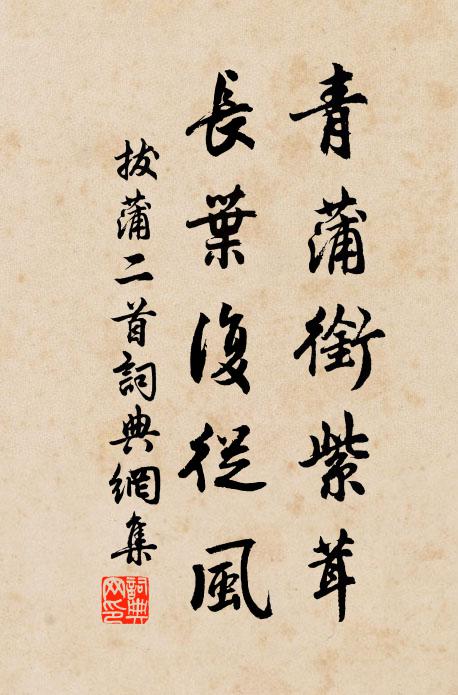 青蒲銜紫茸
長葉復從風
拔蒲二首詞典網集
詞典
网印